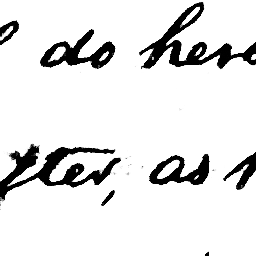 do here
after, as